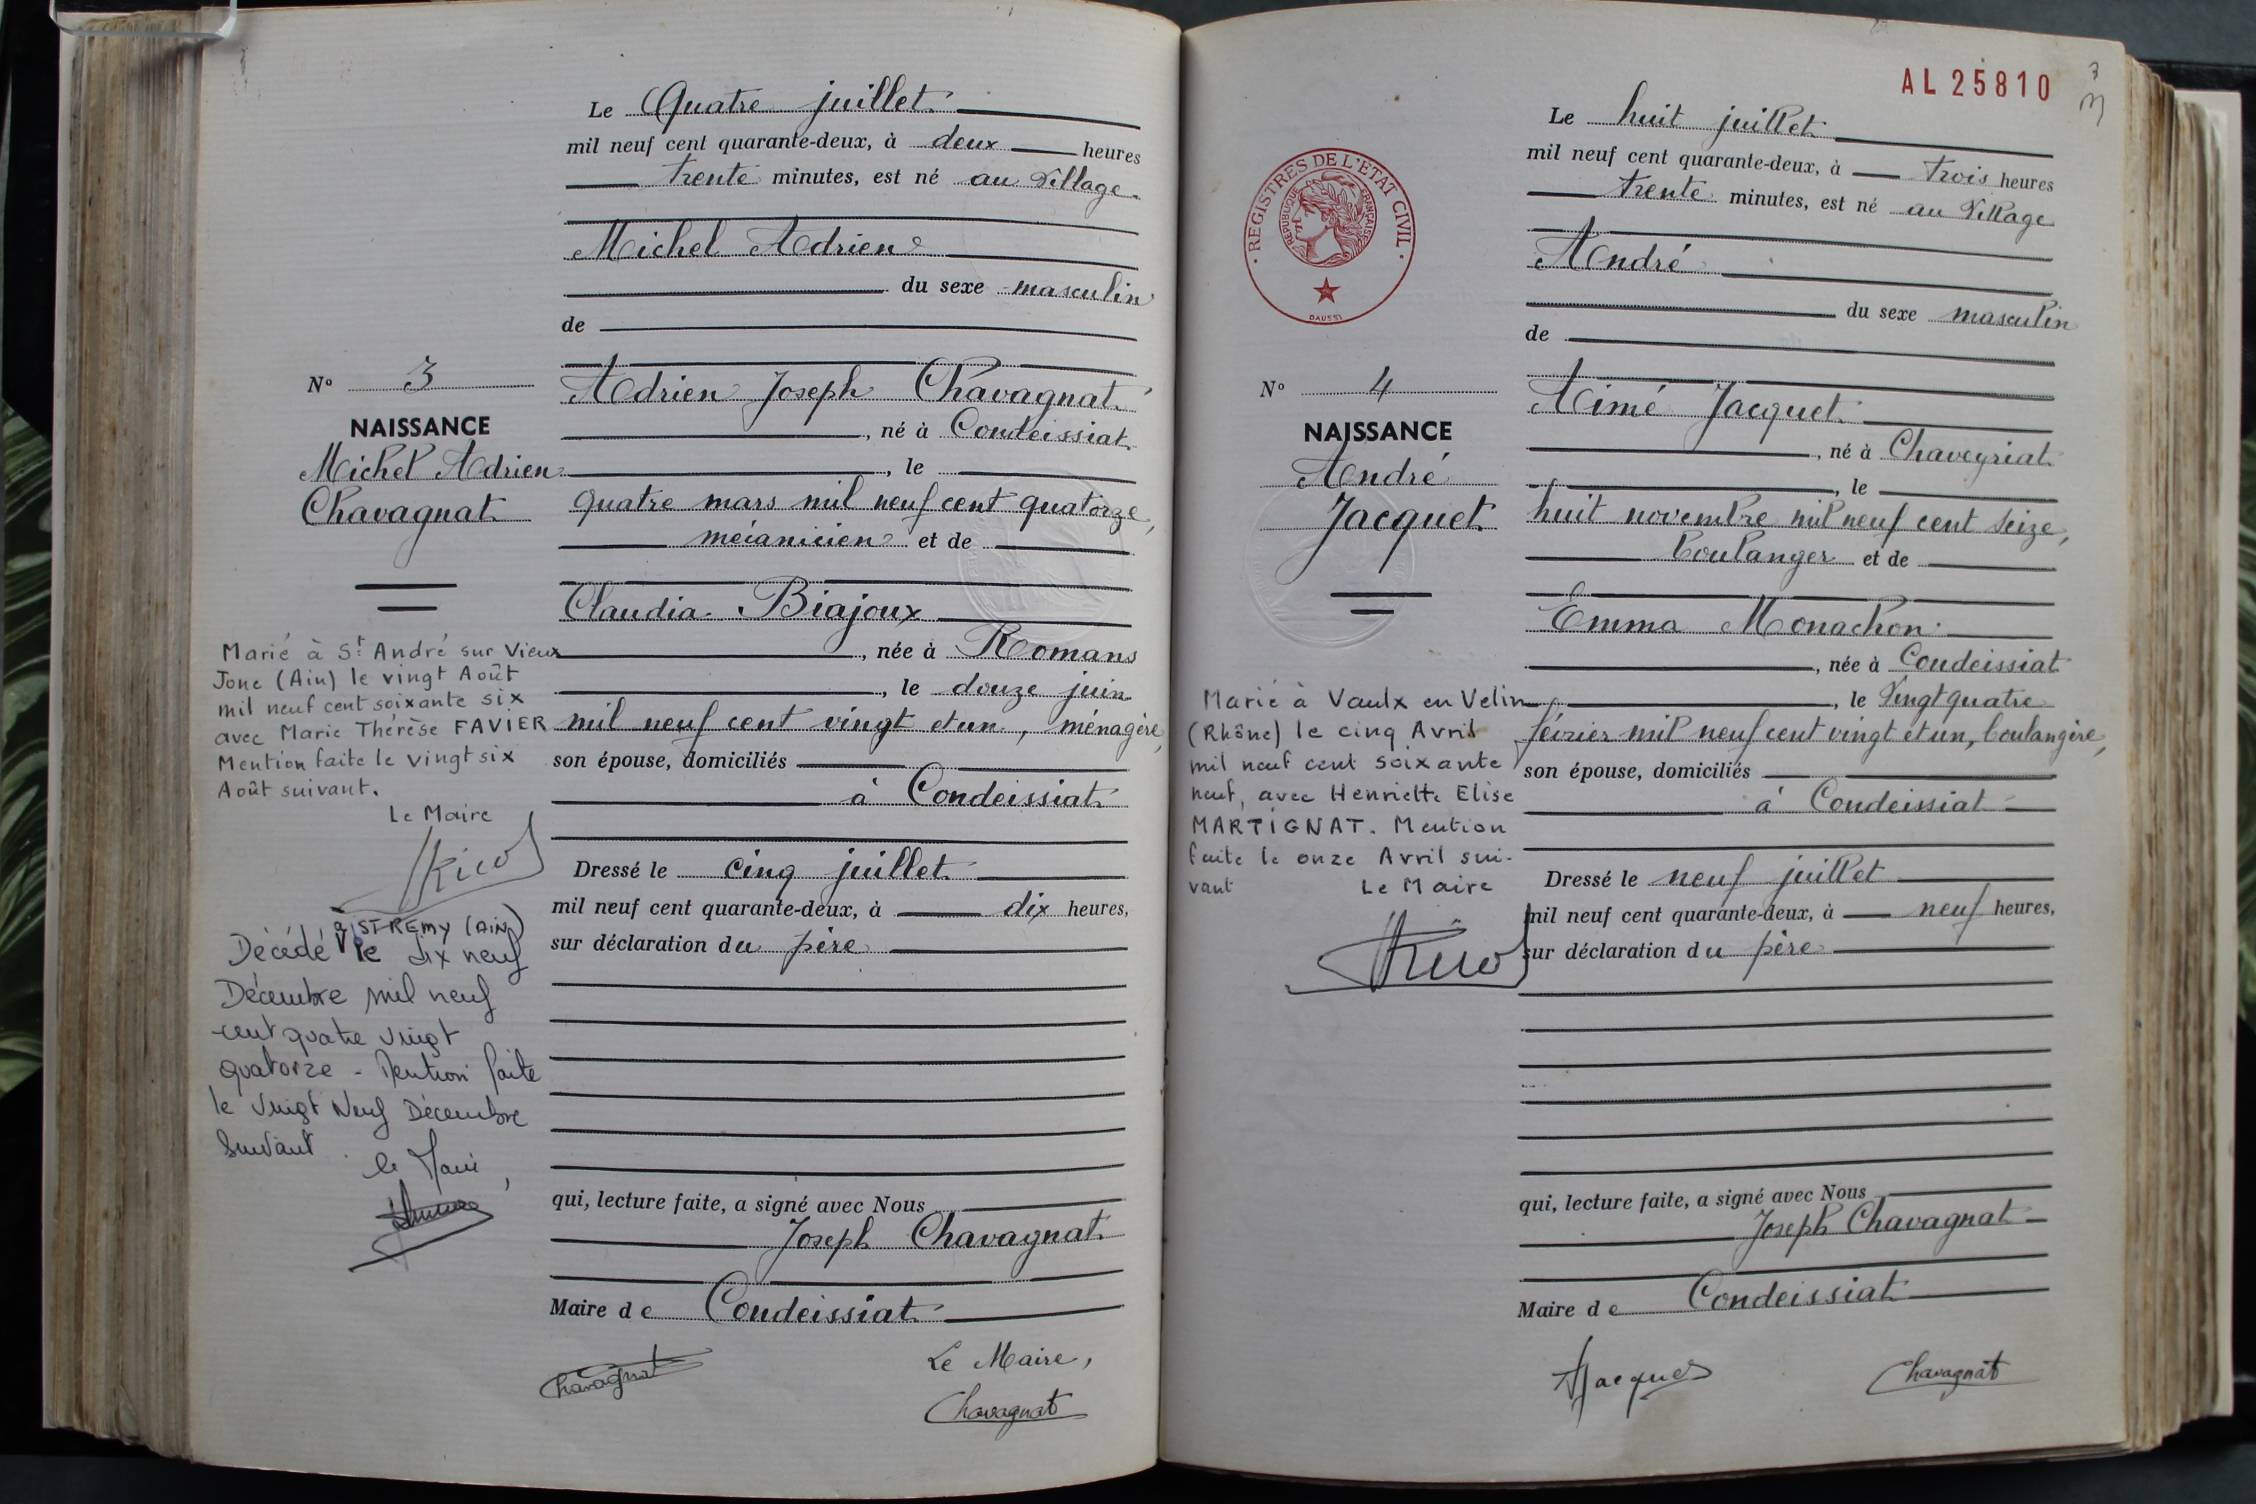 Le Quatre juillet
mil neuf cent quarante-deux, à deux heures
trente minutes, est né au Village
Michel Adrien
du sexe masculin
de
Adrien Joseph Chavagnat
, né à Condeissiat
, le
quatre mars mil neuf cent quatorze,
mécanicien et de
Claudia Biajoux
, née à Romans
, le douze juin
mil neuf cent vingt et un, ménagère,
son épouse, domiciliés
à Condeissiat
Dressé le cinq juillet
mil neuf cent quarante-deux, à dix heures,
sur déclaration du père
qui, lecture faite, a signé avec Nous
Joseph Chavagnat
Maire de Condeissiat
Le Maire,
Chavagnat
Chavagnat
No 3
NAISSANCE
Michel Adrien
Chavagnat
Marié à St André sur Vieux
Jonc (Ain) le vingt Août
mil neuf cent soixante six
avec Marie Thérèse FAVIER
Mention faite le vingt six
Août suivant.
Le Maire
à ST REMY (AIN)
Décédé le dix neuf
Décembre mil neuf
cent quatre vingt
quatorze - Mention faite
le vingt Neuf Décembre
suivant
le Maire,
AL 25810
3
REGISTRES DE L'ÉTAT CIVIL
RÉPUBLIQUE FRANÇAISE
DAUSSY
Le huit juillet
mil neuf cent quarante-deux, à trois heures
trente minutes, est né au Village
André
du sexe masculin
de
Aimé Jacquet
, né à Chaveyriat
, le
huit novembre mil neuf cent seize,
boulanger et de
Emma Monachon
, née à Condeissiat
, le vingt quatre
février mil neuf cent vingt et un, boulangère,
son épouse, domiciliés
à Condeissiat
Dressé le neuf juillet
mil neuf cent quarante-deux, à neuf heures,
sur déclaration du père
qui, lecture faite, a signé avec Nous
Joseph Chavagnat
Maire de Condeissiat
Chavagnat
No 4
NAISSANCE
André
Jacquet
Marié à Vaulx en Velin
(Rhône) le cinq Avril
mil neuf cent soixante
neuf, avec Henriette Elise
MARTIGNAT. Mention
faite le onze Avril sui-
vant
Le Maire